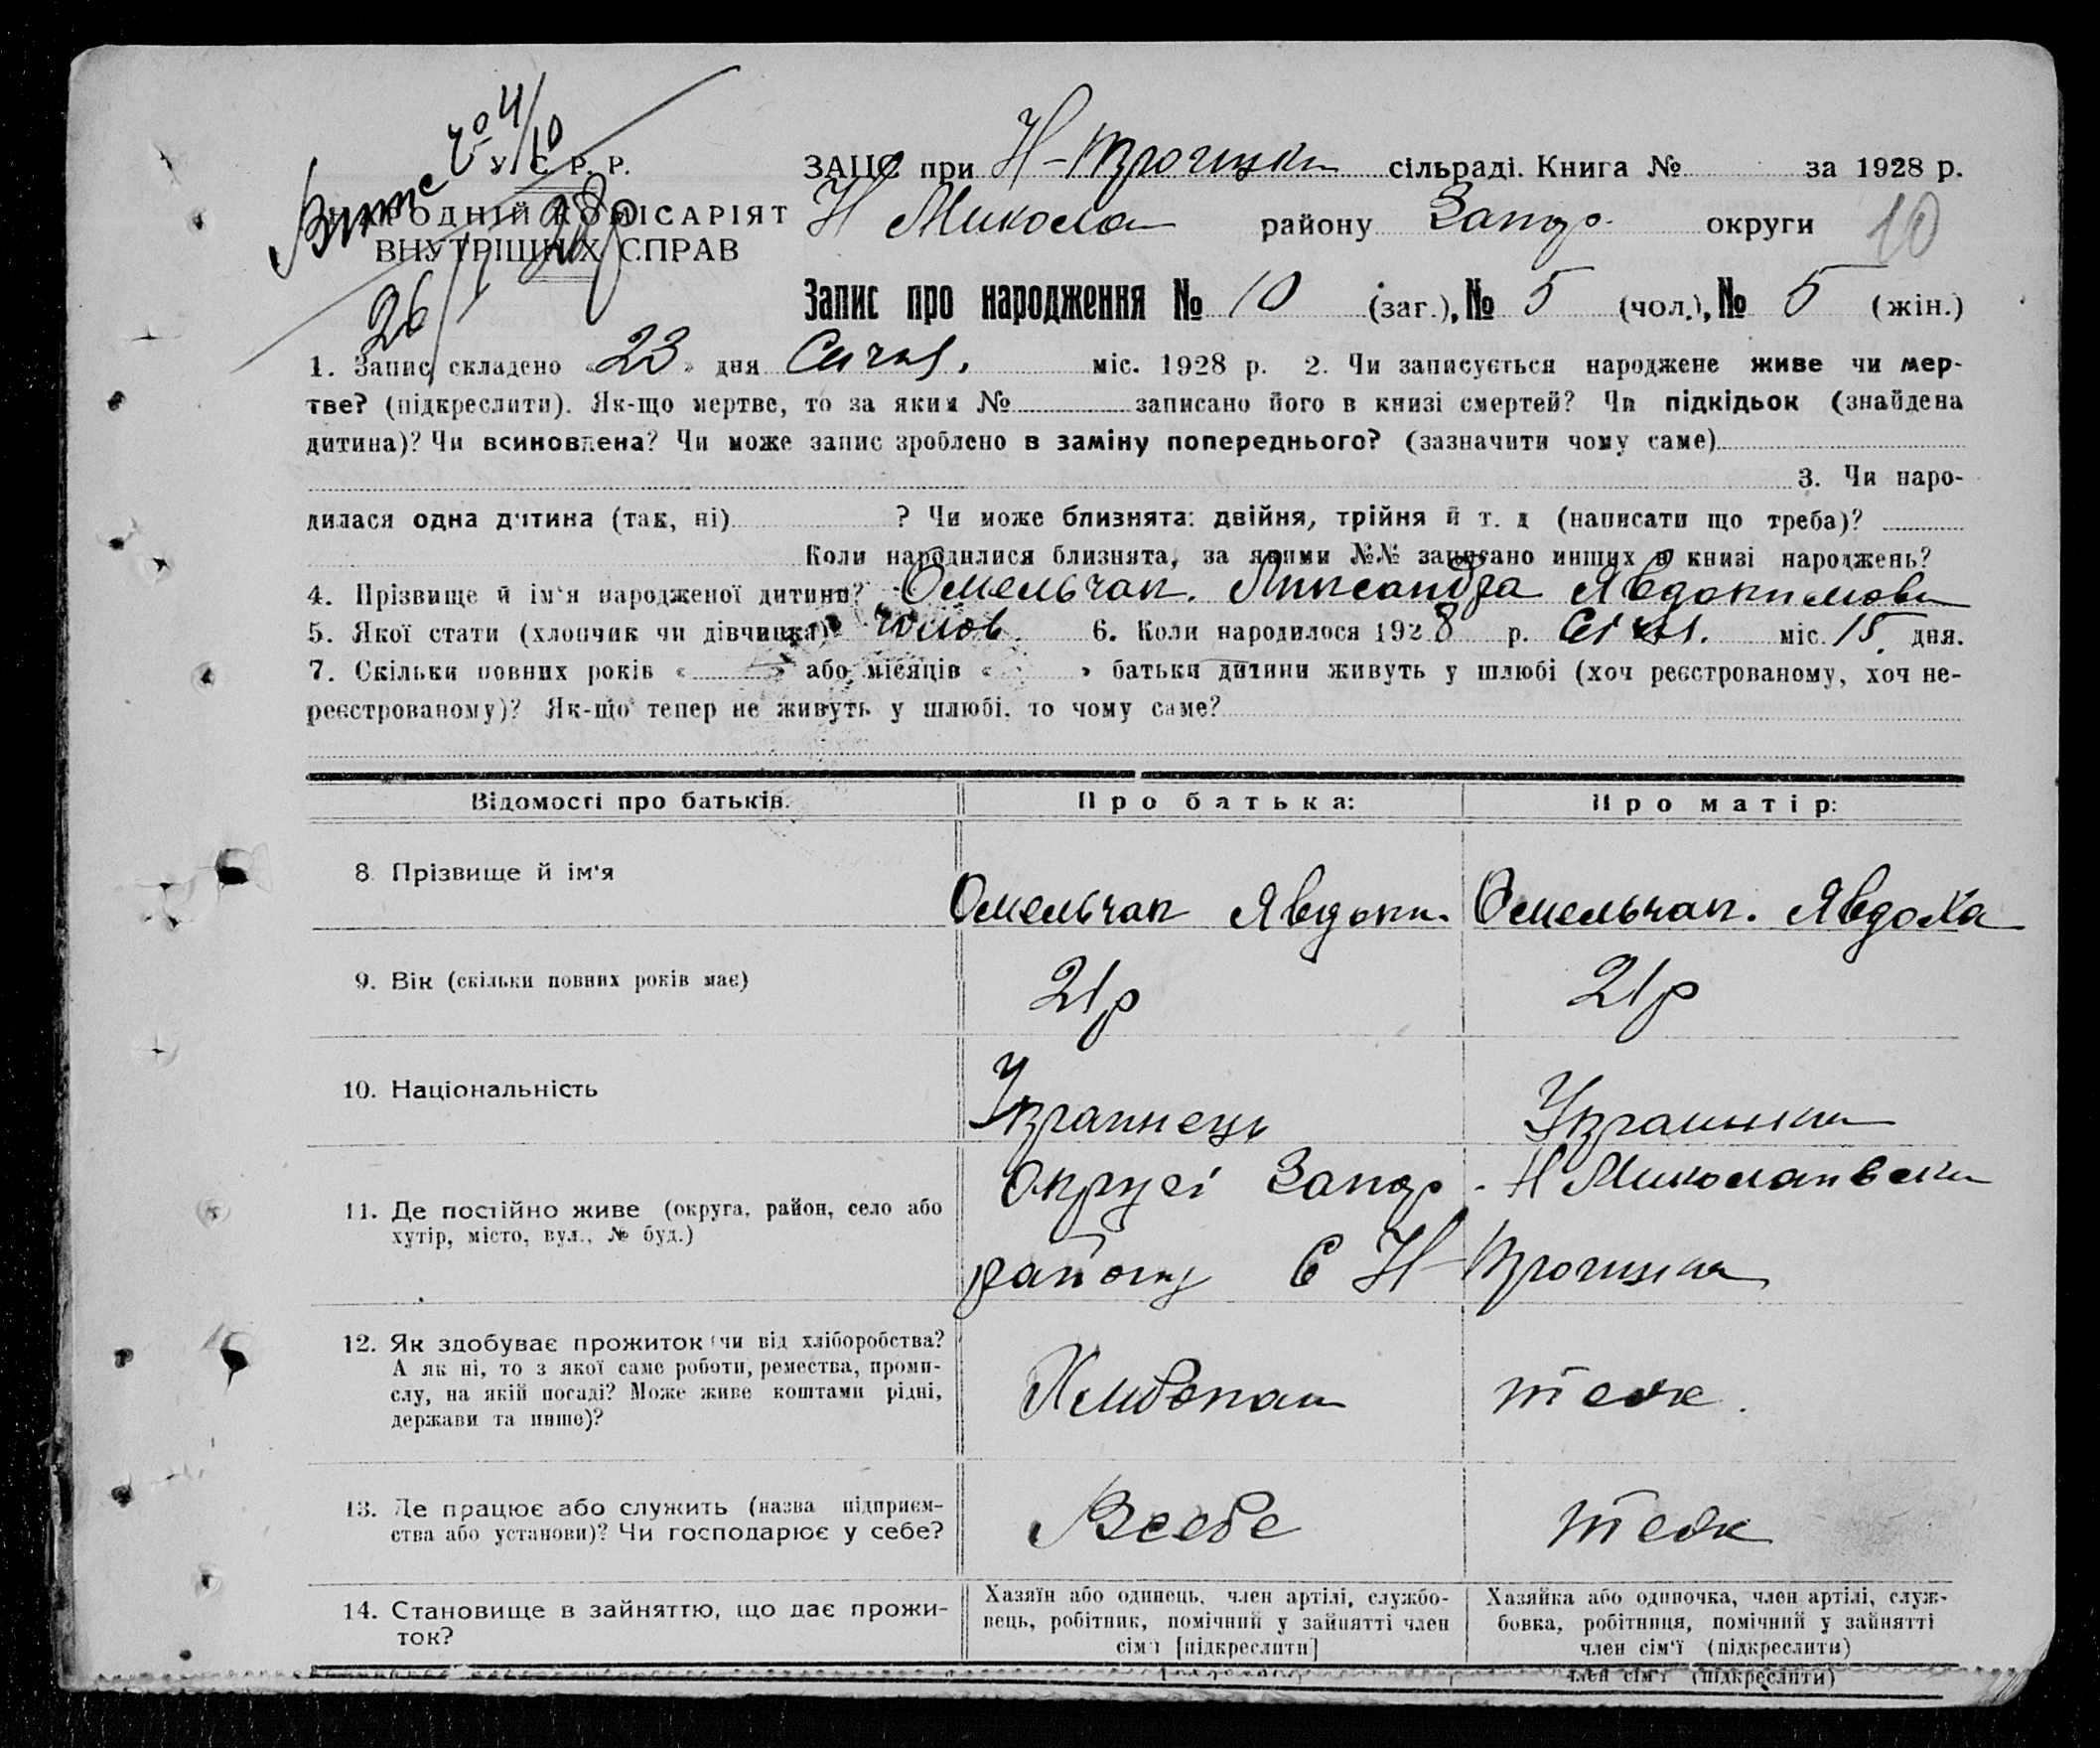 У. С. Р. Р.
НАРОДНІЙ КОМІСАРІЯТ
ВНУТРІШНІХ СПРАВ
26/I 28р
ЗАЦС при Н- сільраді. Книга № за 1928 р.
Н Микола району Запор. округи 10
Запис про народження № 10 (заг.), № 5 (чол.), № 5 (жін.)
1. Запис складено «23» дня Січня міс. 1928 р. 2. Чи записується народжене живе чи мер-
тве? (підкреслити). Як-що мертве, то за яким № записано його в книзі смертей? Чи підкідьок (знайдена
дитина)? Чи всиновлена? Чи може запис зроблено в заміну попереднього? (зазначити чому саме)
3. Чи наро-
дилася одна дитина (так, ні) ? Чи може близнята: двійня, трійня й т. д (написати що треба)?
Коли народилися близнята, за якими №№ записано инших в книзі народжень?
4. Прізвище й ім'я народженої дитини? Омельчак. Явдокимов
5. Якої стати (хлопчик чи дівчинка) чолов. 6. Коли народилося 1928 р. Січ. міс. 15 дня.
7. Скільки повних років « » або місяців « » батьки дитини живуть у шлюбі (хоч реєстрованому, хоч не-
реєстрованому)? Як-що тепер не живуть у шлюбі, то чому саме?
Відомості про батьків. Про батька: Про матір:
8. Прізвище й ім'я Омельчак Явдоки. Омельчак. Явдоха
9. Вік (скільки повних років має) 21р 21р
10. Національність Українець Українка
11. Де постійно живе (округа, район, село або Округі Запор. Н Миколаивски
хутір, місто, вул., № буд.) району С Н-
12. Як здобуває прожиток (чи від хліборобства? Хлибопаш теж.
А як ні, то з якої саме роботи, ремества, проми-
слу, на якій посаді? Може живе коштами рідні,
держави та инше)?
13. Де працює або служить (назва підприєм- Всебе теж
ства або установи)? Чи господарює у себе?
14. Становище в зайняттю, що дає прожи-
ток?
Хазяїн або одинець, член артілі, службо-
вець, робітник, помічний у зайнятті член
сім'ї [підкреслити]
Хазяйка або одиночка, член артілі, служ-
бовка, робітниця, помічний у зайнятті
член сім'ї (підкреслити)
член сім'ї (підкреслити)